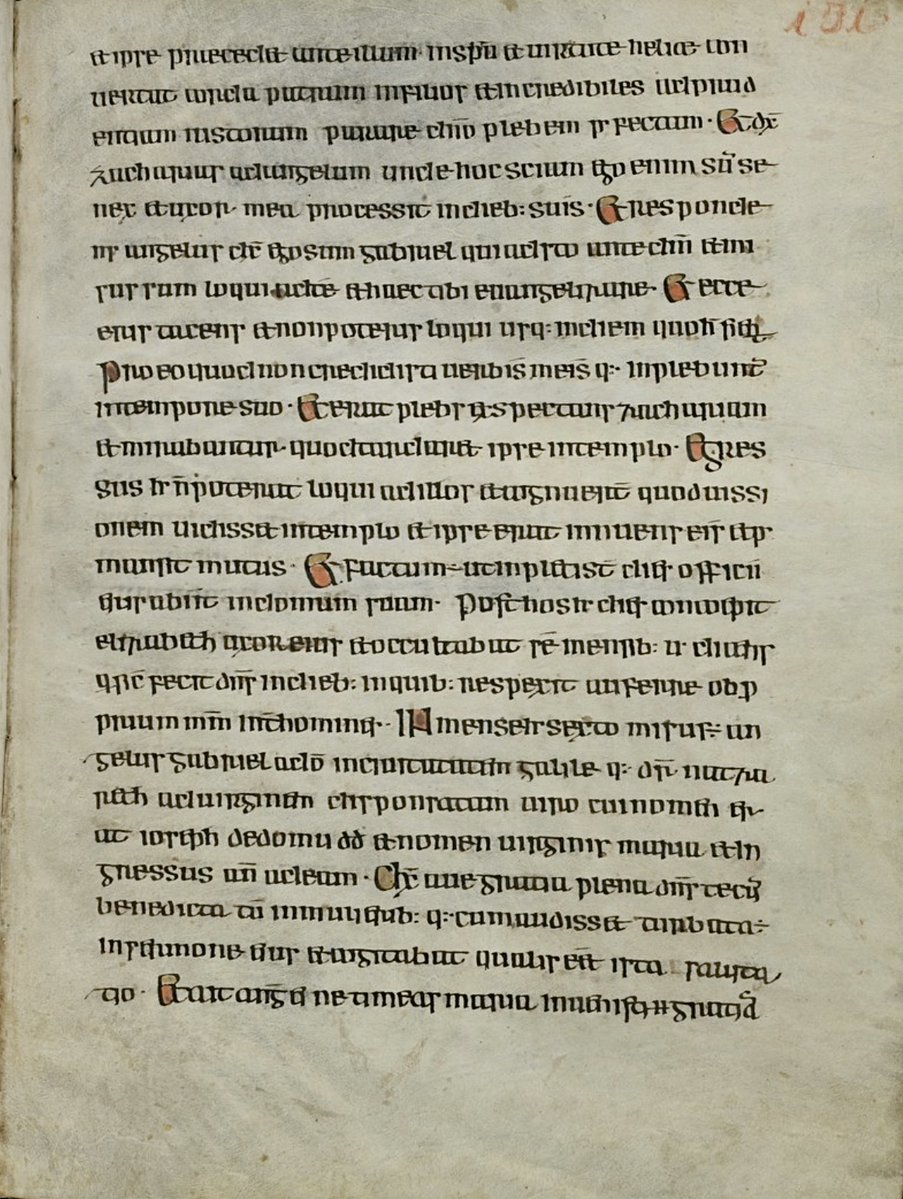 131
et ipse p͞recedet ante illum in sp̄u et uirtute heliae con
uertat corda patrum in filios et incredibiles ad prud
entiam iustorum parare dn̄o plebem perfectam · Et dx̄
zacharias ad angelum unde hoc sciam ego enim su᷒ se
nex et uxor mea processit in dieb: suis · Et responde
ns angelus dx̄ ego sum gabriel qui adsto ante dn̄m et mi
sus sum loqui ad te et haec tibi euangelizare · Et ecce
eris tacens et non poteris loqui usq: in diem quo h̄ fiet
pro eo quod non credidista uerbis meis q: inplebunt᷒
in tempore suo · Et erat plebs expectans zachariam
et mirabantur · quod tardaret ipse in templo · Egres
sus h̄ n̄ poterat loqui ad illos et cognuert̄ quod uissi
onem uidisset in templo et ipse erat innuens eis̄ et per
mansit mutus · Et factum ÷ ut inpleti st̄ dies officii
eius abiit in domum suam · Post hos h̄ dies concoepit
elizabeth uxor eius et occultabat se mensib: u · dicens
q sic̄ fecit dn̄s in dieb: in quib: respexit auferre obp
prium mm̄ int̄ homines · In mense h̄ sexto misus ÷ an
gelus gabriel a do̅ in ciuitatem galile q: dn̄ natza
reth ad uirginem disponsatam uiro cui nomen er
at ioseph de domu dd et nomen uirginis maria et in
gressus an̄ ad eam · Dx̄ aue gratia plena dn̄s tecu᷒
benedicta tū in mulierib: q: cum audisset turbata ÷
in sermone eius et cogitabat qualis eēt ista saluta
tio · Et ait ang̅ ei ne timeas maria inuenisti h gratia̅